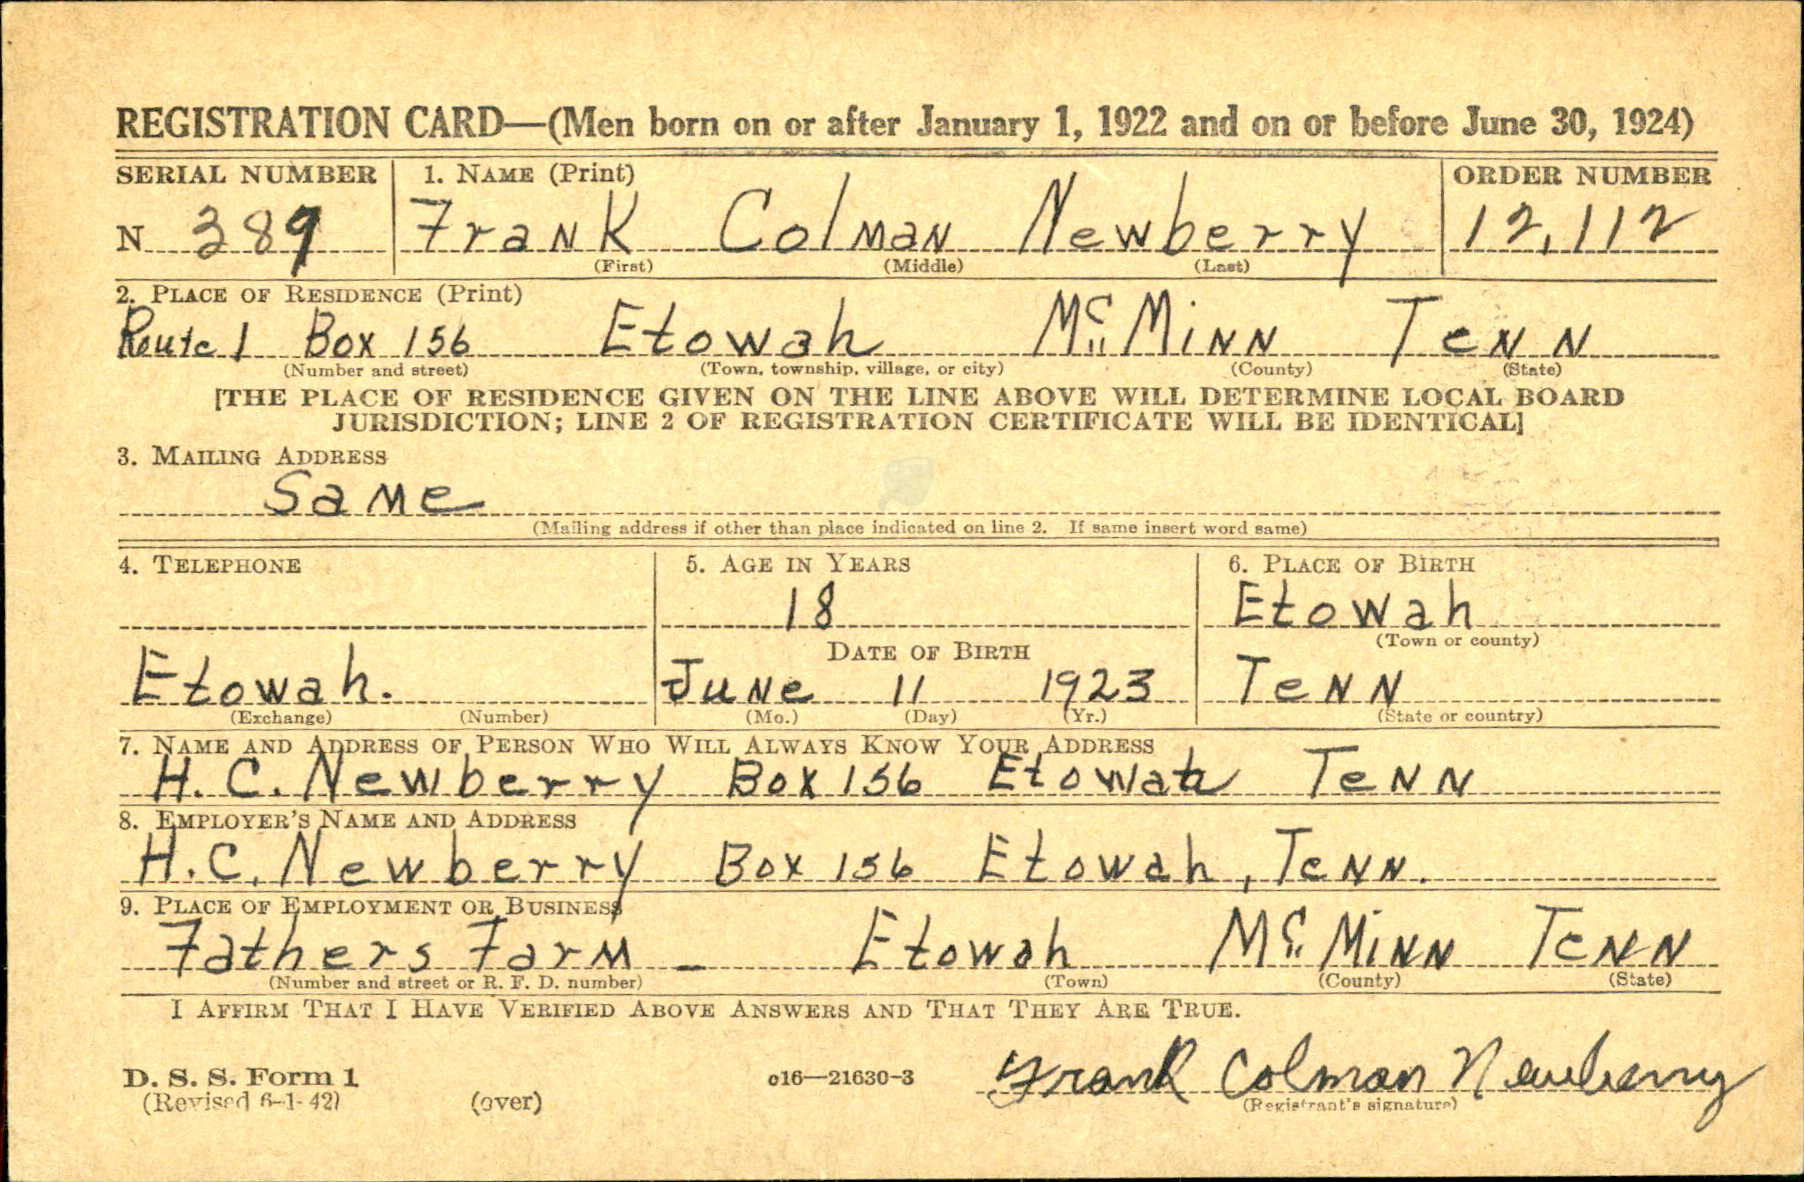 REGISTRATION CARD—(Men born on or after January 1, 1922 and on or before June 30, 1924)
SERIAL NUMBER 1. NAME (Print) ORDER NUMBER
N 389 Frank Colman Newberry 12,112
(First) (Middle) (Last)
2. PLACE OF RESIDENCE (Print)
Route 1 Box 156 Etowah McMinn Tenn
(Number and street) (Town, township, village, or city) (County) (State)
[THE PLACE OF RESIDENCE GIVEN ON THE LINE ABOVE WILL DETERMINE LOCAL BOARD
JURISDICTION; LINE 2 OF REGISTRATION CERTIFICATE WILL BE IDENTICAL]
3. MAILING ADDRESS
Same
(Mailing address if other than place indicated on line 2. If same insert word same)
4. TELEPHONE 5. AGE IN YEARS 6. PLACE OF BIRTH
18 Etowah
DATE OF BIRTH (Town or county)
Etowah. June 11 1923 Tenn
(Exchange) (Number) (Mo.) (Day) (Yr.) (State or country)
7. NAME AND ADDRESS OF PERSON WHO WILL ALWAYS KNOW YOUR ADDRESS
H. C. Newberry Box 156 Etowah Tenn
8. EMPLOYER'S NAME AND ADDRESS
H.C. Newberry Box 156 Etowah, Tenn.
9. PLACE OF EMPLOYMENT OR BUSINESS
Fathers Farm – Etowah McMinn Tenn
(Number and street or R. F. D. number) (Town) (County) (State)
I AFFIRM THAT I HAVE VERIFIED ABOVE ANSWERS AND THAT THEY ARE TRUE.
D. S. S. Form 1 c16—21630-3 Frank Colman Newberry
(Revised 6-1-42) (over) (Registrant's signature)